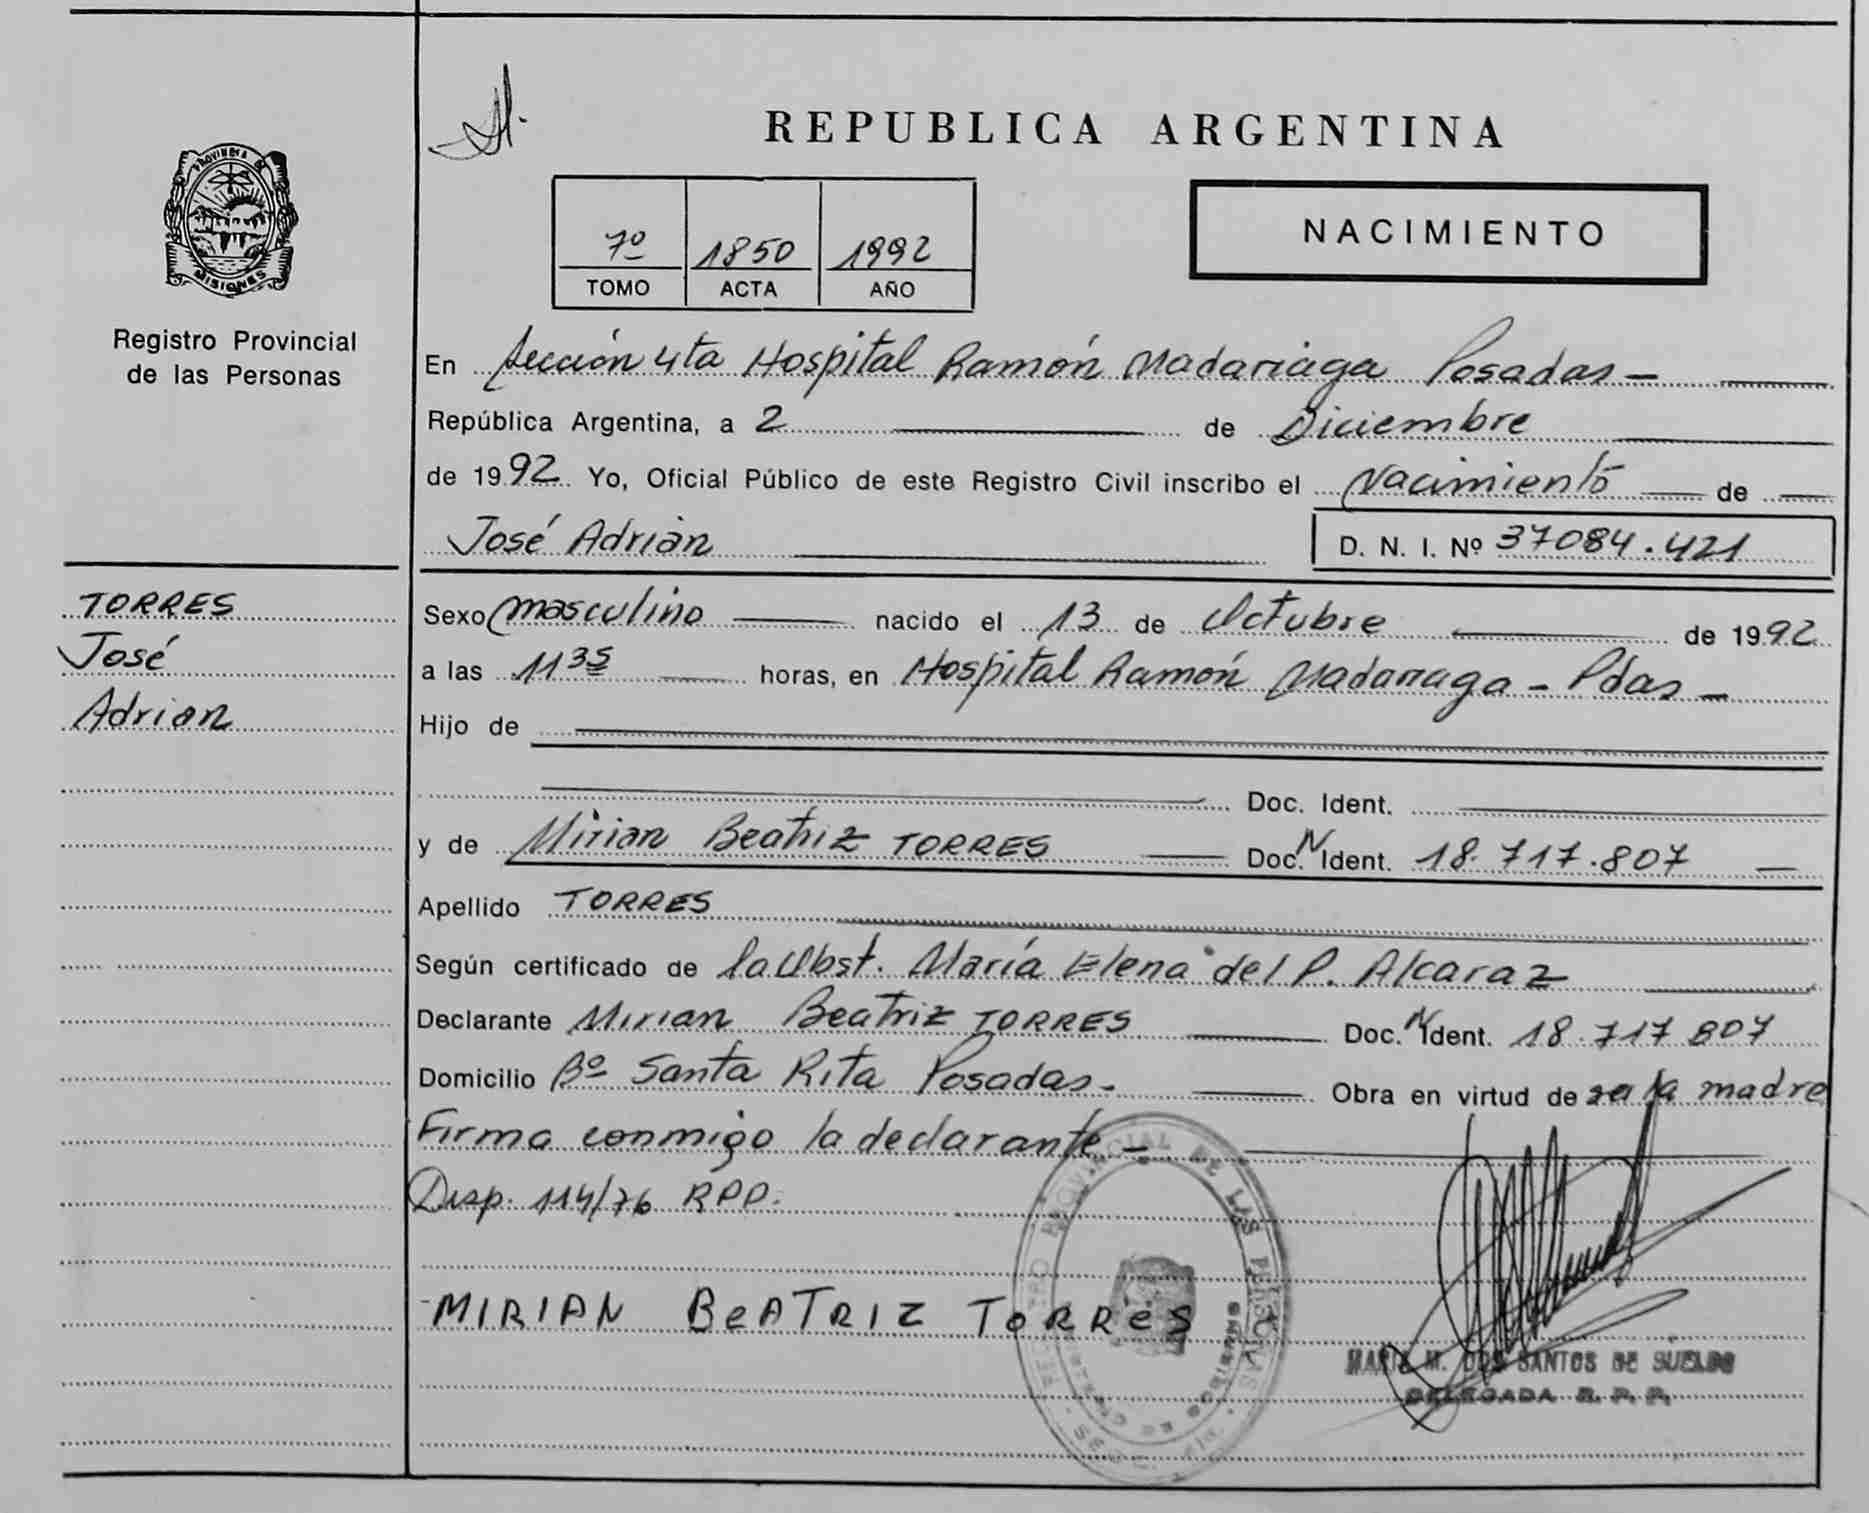 REPUBLICA ARGENTINA
PROVINCIA DE
MISIONES
Registro Provincial
de las Personas
7º 1850 1992
TOMO ACTA AÑO
NACIMIENTO
En Sección 4ta Hospital Ramón Madariaga Posadas -
República Argentina, a 2 de Diciembre
de 1992 Yo, Oficial Público de este Registro Civil inscribo el Nacimiento de
José Adrián
D. N. I. Nº 37084.421
TORRES
José
Adrian
Sexo masculino nacido el 13 de Octubre de 1992
a las 11 35 horas, en Hospital Ramón Madariaga - Pdas -
Hijo de
Doc. Ident.
y de Mirian Beatriz TORRES Doc. N Ident. 18.717.807
Apellido TORRES
Según certificado de la Obst. María Elena del P. Alcaraz
Declarante Mirian Beatriz TORRES Doc. N Ident. 18.717 807
Domicilio Bº Santa Rita Posadas. Obra en virtud de ser la madre
Firma conmigo la declarante -
Disp. 114/76 RPP.
MIRIAN BEATRIZ TORRES
REGISTRO PROVINCIAL DE LAS PERSONAS
MARIA M. DOS SANTOS DE SUELDO
DELEGADA R. P. P.